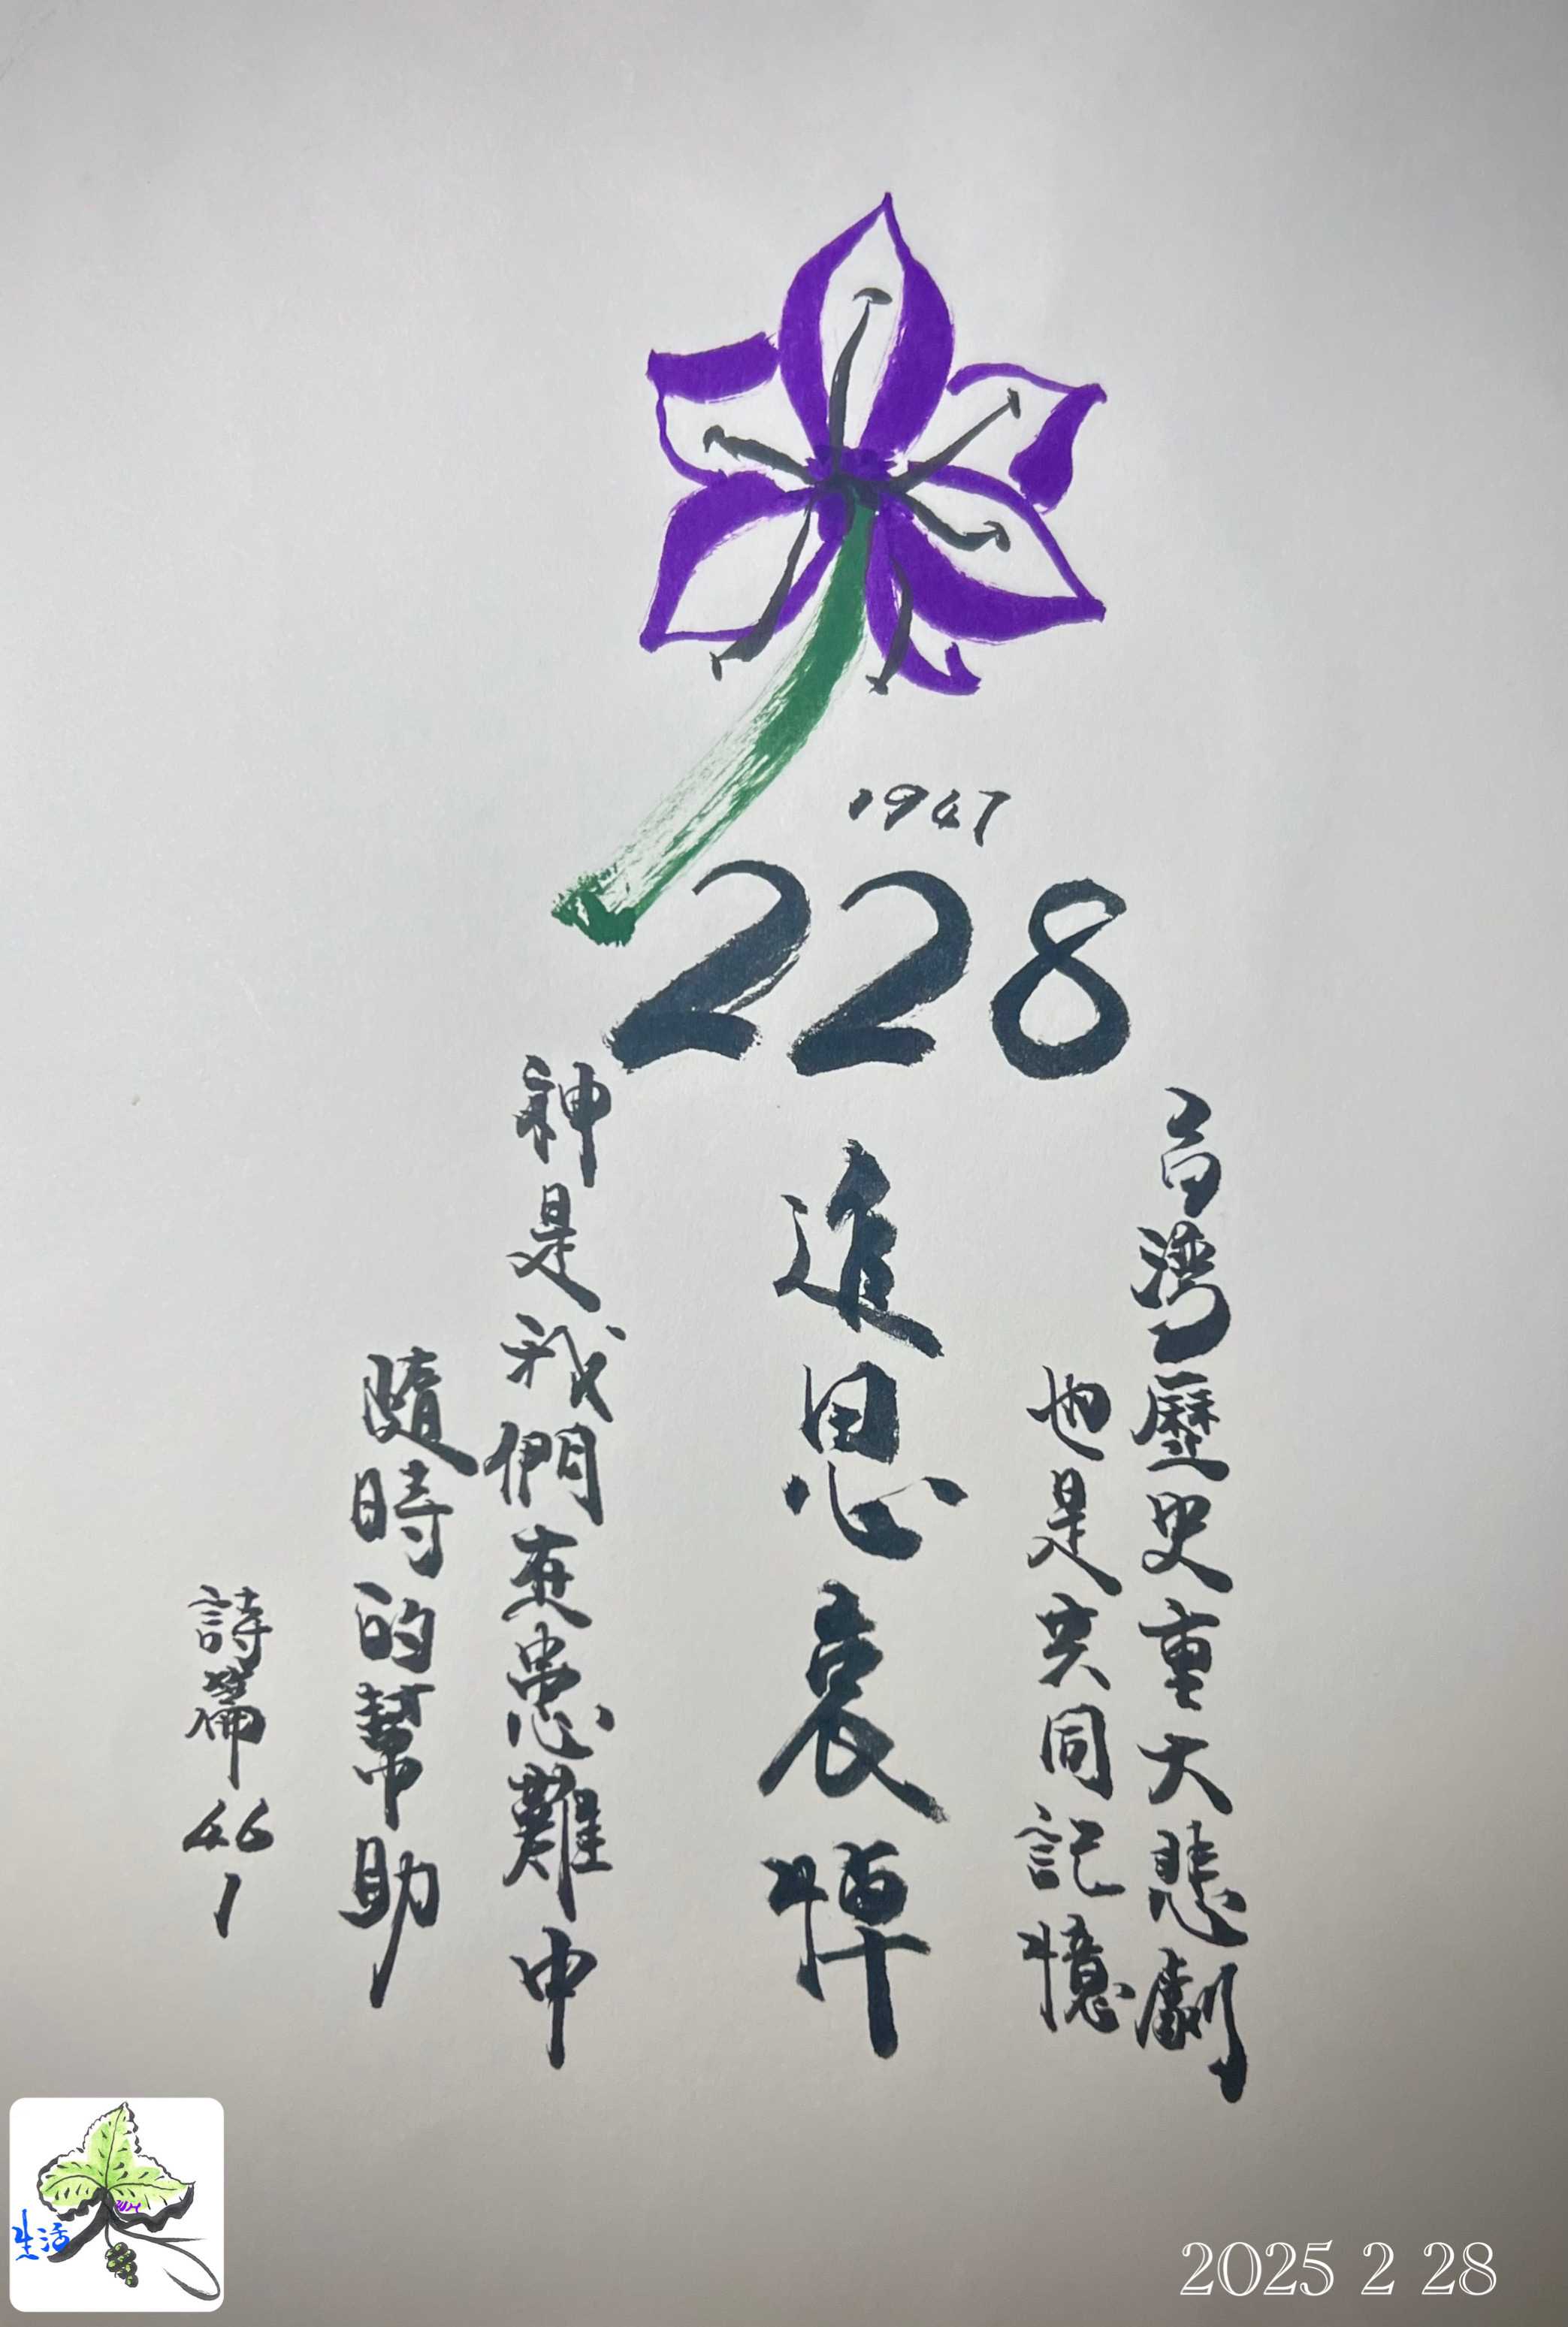 1947
228
台灣歷史重大悲劇
也是共同記憶
追思哀悼
神是我們在患難中
隨時的幫助
詩篇46
1
生活
2025 2 28